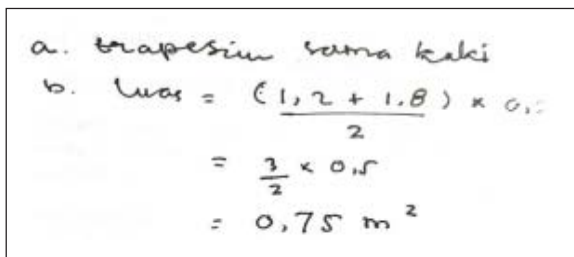 a. trapesium sama kaki
b. Luas = (1,2 + 1,8) × 0,
2
= 3/2 × 0,5
= 0,75 m²